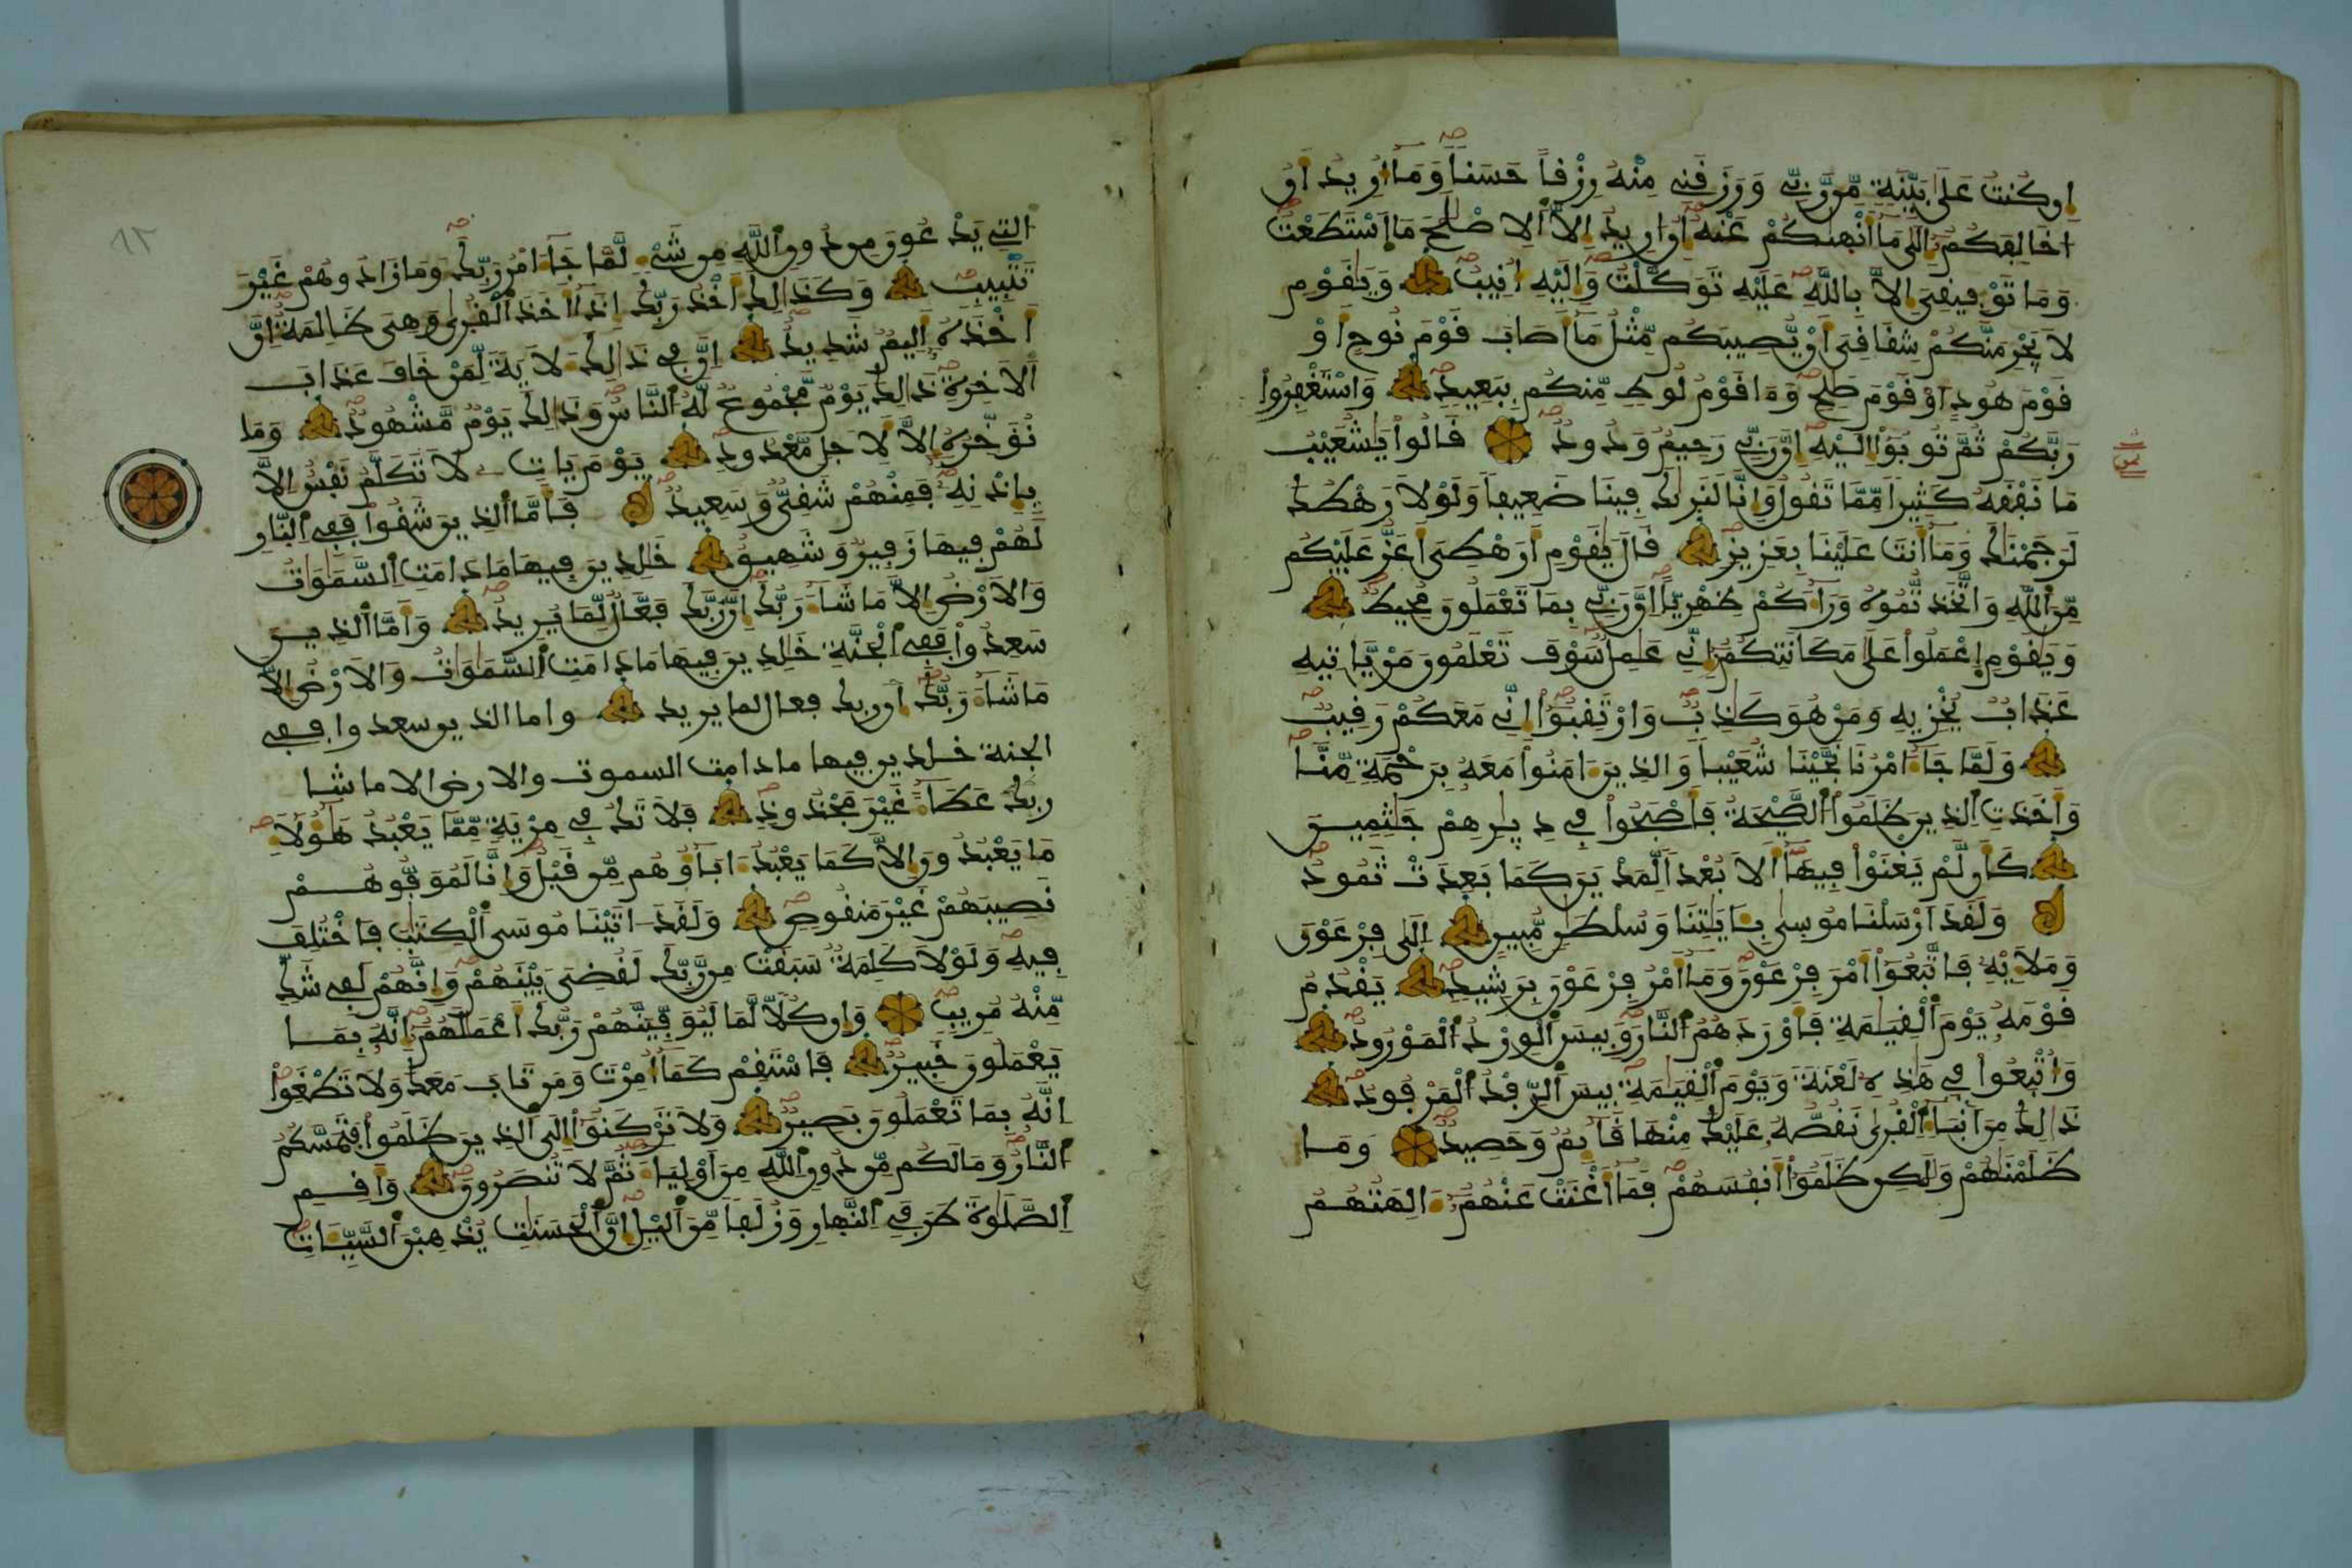 إِن كُنتُ عَلَىٰ بَيِّنَةٍ مِّن رَّبِّي وَرَزَقَنِي مِنْهُ رِزْقاً حَسَناً وَمَا أُرِيدُ أَنُ
اخَالِفَكُمُ إِلَىٰ مَا أَنْهَىٰكُمْ عَنْهُ إِنُ ارِيدُ إِلَّا أَلِاصْلَٰحَ مَا اَسْتَطَعْتُ
وَمَا تَوْفِيقِيَ إِلَّا بِاللَّهِ عَلَيْهِ تَوَكَّلْتُ وَإِلَيْهِ أُنِيبُ وَيَٰقَوْمِ
لَا يَجْرِمَنَّكُمْ شِقَاقِيَ أَنْ يُّصِيبَكُم مِّثْلُ مَا أَصَابَ قَوْمَ نُوحٍ اَوْ
قَوْمَ هُودٍ اَوْ قَوْمَ صَٰلِحٍ وَمَا قَوْمُ لُوطٍ مِّنكُم بِبَعِيدٍ وَاسْتَغْفِرُوا
رَبَّكُمْ ثُمَّ تُوبُوا إِلَيْهِ إِنَّ رَبِّي رَحِيمٌ وَدُودٌ قَالُوا يَٰشُعَيْبُ
مَا نَفْقَهُ كَثِيراً مِّمَّا تَقُولُ وَإِنَّا لَنَرَىٰكَ فِينَا ضَعِيفاً وَلَوْلَا رَهْطُكَ
لَرَجَمْنَٰكَ وَمَا أَنتَ عَلَيْنَا بِعَزِيزٍ قَالَ يَٰقَوْمِ أَرَهْطِيَ أَعَزُّ عَلَيْكُم
مِّنَ اَللَّهِ وَاتَّخَذتُّمُوهُ وَرَاءَكُمْ ظِهْرِيّاً إِنَّ رَبِّي بِمَا تَعْمَلُونَ مُحِيطٌ
وَيَٰقَوْمِ اِعْمَلُوا عَلَىٰ مَكَانَتِكُمُ إِنِّي عَٰمِلٌ سَوْفَ تَعْلَمُونَ مَنْ يَّاتِيهِ
عَذَابٌ يُخْزِيهِ وَمَنْ هُوَ كَٰذِبٌ وَارْتَقِبُوا إِنِّي مَعَكُمْ رَقِيبٌ
وَلَمَّا جَاءَ امْرُنَا نَجَّيْنَا شُعَيْباً وَالذِينَ ءَامَنُوا مَعَهُ بِرَحْمَةٍ مِّنَّا
وَأَخَذَتِ اِلذِينَ ظَلَمُوا اُلصَّيْحَةُ فَأَصْبَحُوا فِي دِيَٰرِهِمْ جَٰثِمِينَ
كَأَن لَّمْ يَغْنَوْا فِيهَا أَلَا بُعْداً لِّمَدْيَنَ كَمَا بَعِدَتْ ثَمُودُ
وَلَقَدَ ارْسَلْنَا مُوسَىٰ بِـَٔايَٰتِنَا وَسُلْطَٰنٍ مُّبِينٍ اِلَىٰ فِرْعَوْنَ
وَمَلَإِيْهِ فَاتَّبَعُوا أَمْرَ فِرْعَوْنَ وَمَا أَمْرُ فِرْعَوْنَ بِرَشِيدٍ يَقْدُمُ
قَوْمَهُ يَوْمَ اَلْقِيَٰمَةِ فَأَوْرَدَهُمُ اُلنَّارَ وَبِيسَ اَلْوِرْدُ اُلْمَوْرُودُ
وَأُتْبِعُوا فِي هَٰذِهِ لَعْنَةً وَيَوْمَ اَلْقِيَٰمَةِ بِيسَ اَلرِّفْدُ اُلْمَرْفُودُ
ذَٰلِكَ مِنَ اَنبَاءِ اِلْقُرَىٰ نَقُصُّهُ عَلَيْكَ مِنْهَا قَائِمٌ وَحَصِيدٌ وَمَا
ظَلَمْنَٰهُمْ وَلَٰكِن ظَلَمُوا أَنفُسَهُمْ فَمَا أَغْنَتْ عَنْهُمُ ءَالِهَتُهُمُ
التِي يَدْعُونَ مِن دُونِ اِللَّهِ مِن شَيْءٍ لَّمَّا جَاءَ امْرُ رَبِّكَ وَمَا زَادُوهُمْ غَيْرَ
تَتْبِيبٍ وَكَذَٰلِكَ أَخْذُ رَبِّكَ إِذَا أَخَذَ اَلْقُرَىٰ وَهِيَ ظَٰلِمَةٌ اِنَّ
أَخْذَهُ أَلِيمٌ شَدِيدٌ اِنَّ فِي ذَٰلِكَ لَأٓيَةً لِّمَنْ خَافَ عَذَابَ
اَلَاخِرَةِ ذَٰلِكَ يَوْمٌ مَّجْمُوعٌ لَّهُ اُلنَّاسُ وَذَٰلِكَ يَوْمٌ مَّشْهُودٌ وَمَا
نُؤَخِّرُهُ إِلَّا لِأَجَلٍ مَّعْدُودٍ يَوْمَ يَاتِ لَا تَكَلَّمُ نَفْسٌ اِلَّا
بِإِذْنِهِ فَمِنْهُمْ شَقِيٌّ وَسَعِيدٌ فَأَمَّا اَلذِينَ شَقُوا فَفِي اِلنَّارِ
لَهُمْ فِيهَا زَفِيرٌ وَشَهِيقٌ خَٰلِدِينَ فِيهَا مَا دَامَتِ اِلسَّمَٰوَٰتُ
وَالَارْضُ إِلَّا مَا شَاءَ رَبُّكَ إِنَّ رَبَّكَ فَعَّالٌ لِّمَا يُرِيدُ وَأَمَّا اَلذِينَ
سَعِدُوا فَفِي اِلْجَنَّةِ خَٰلِدِينَ فِيهَا مَا دَامَتِ اِلسَّمَٰوَٰتُ وَالَارْضُ إِلَّا
مَا شَاءَ رَبُّكَ ان ربك فعال لما يريد واما الذين سعدوا ففي
الجنة خلدين فيها ما دامت السموت والارض الا ما شا
ربك عَطَاءً غَيْرَ مَجْذُوذٍ فَلَا تَكُ فِي مِرْيَةٍ مِّمَّا يَعْبُدُ هَٰؤُلَاءِ
مَا يَعْبُدُونَ إِلَّا كَمَا يَعْبُدُ ءَابَاؤُهُم مِّن قَبْلُ وَإِنَّا لَمُوَفُّوهُمْ
نَصِيبَهُمْ غَيْرَ مَنقُوصٍ وَلَقَدَ اتَيْنَا مُوسَى اَلْكِتَٰبَ فَاخْتُلِفَ
فِيهِ وَلَوْلَا كَلِمَةٌ سَبَقَتْ مِن رَّبِّكَ لَقُضِيَ بَيْنَهُمْ وَإِنَّهُمْ لَفِي شَكٍّ
مِّنْهُ مُرِيبٍ وَإِن كُلّاً لَّمَا لَيُوَفِّيَنَّهُمْ رَبُّكَ أَعْمَٰلَهُمُ إِنَّهُ بِمَا
يَعْمَلُونَ خَبِيرٌ فَاسْتَقِمْ كَمَا أُمِرْتَ وَمَن تَابَ مَعَكَ وَلَا تَطْغَوْا
إِنَّهُ بِمَا تَعْمَلُونَ بَصِيرٌ وَلَا تَرْكَنُوا إِلَى اَلذِينَ ظَلَمُوا فَتَمَسَّكُمُ
اُلنَّارُ وَمَا لَكُم مِّن دُونِ اِللَّهِ مِنَ اَوْلِيَاءَ ثُمَّ لَا تُنصَرُونَ وَأَقِمِ
اِلصَّلَوٰةَ طَرَفَيِ اِلنَّهَارِ وَزُلَفاً مِّنَ اَلَّيْلِ إِنَّ اَلْحَسَنَٰتِ يُذْهِبْنَ اَلسَّيِّـَٔاتِ